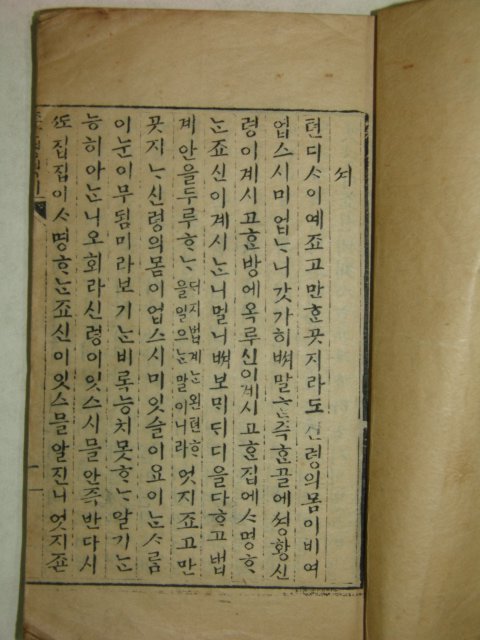 셔
텬디ᄉᆞ이예죠고만ᄒᆞᆫ곳지라도신령의몸이비여
업스시미업ᄂᆞ니갓가히ᄡᅥ말ᄒᆞᆫ즉ᄒᆞᆫ골에셩황신
령이계시고ᄒᆞᆫ방에옥루신이계시고ᄒᆞᆫ집에ᄉᆞ명ᄒᆞ
ᄂᆞᆫ죠신이계시ᄂᆞ니멀니ᄡᅥ보 텬디을다ᄒᆞ고법
계안을두루ᄒᆞᄂᆞ
지법계ᄂᆞᆫ왼텬하
을일으ᄂᆞᆫ말이니라
엇지죠고만
곳지ᄂᆞ신령의몸이업스시미잇슬이요이ᄂᆞᆫᄉᆞᄅᆞᆷ
이눈이무됨미라보기ᄂᆞᆫ비록능치못ᄒᆞᄂᆞ알기ᄂᆞᆫ
능히아ᄂᆞ니오회라신령이잇스시믈안즉반다시
ᄯᅩ집집이ᄉᆞ명ᄒᆞᄂᆞᆫ죠신이잇스믈알진니엇지죤